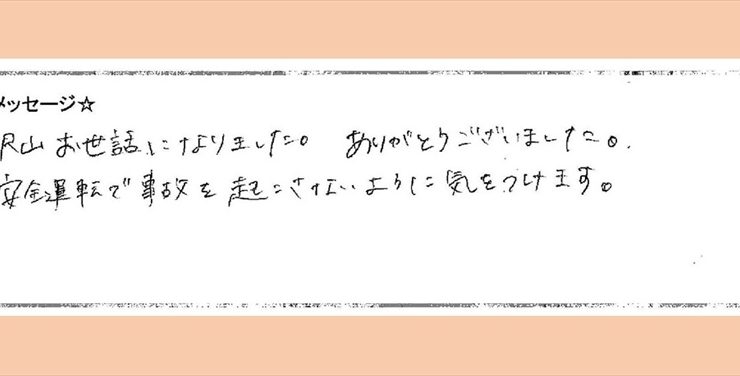 メッセージ☆
沢山お世話になりました。 ありがとうございました。
安全運転で事故を起こさないように気をつけます。